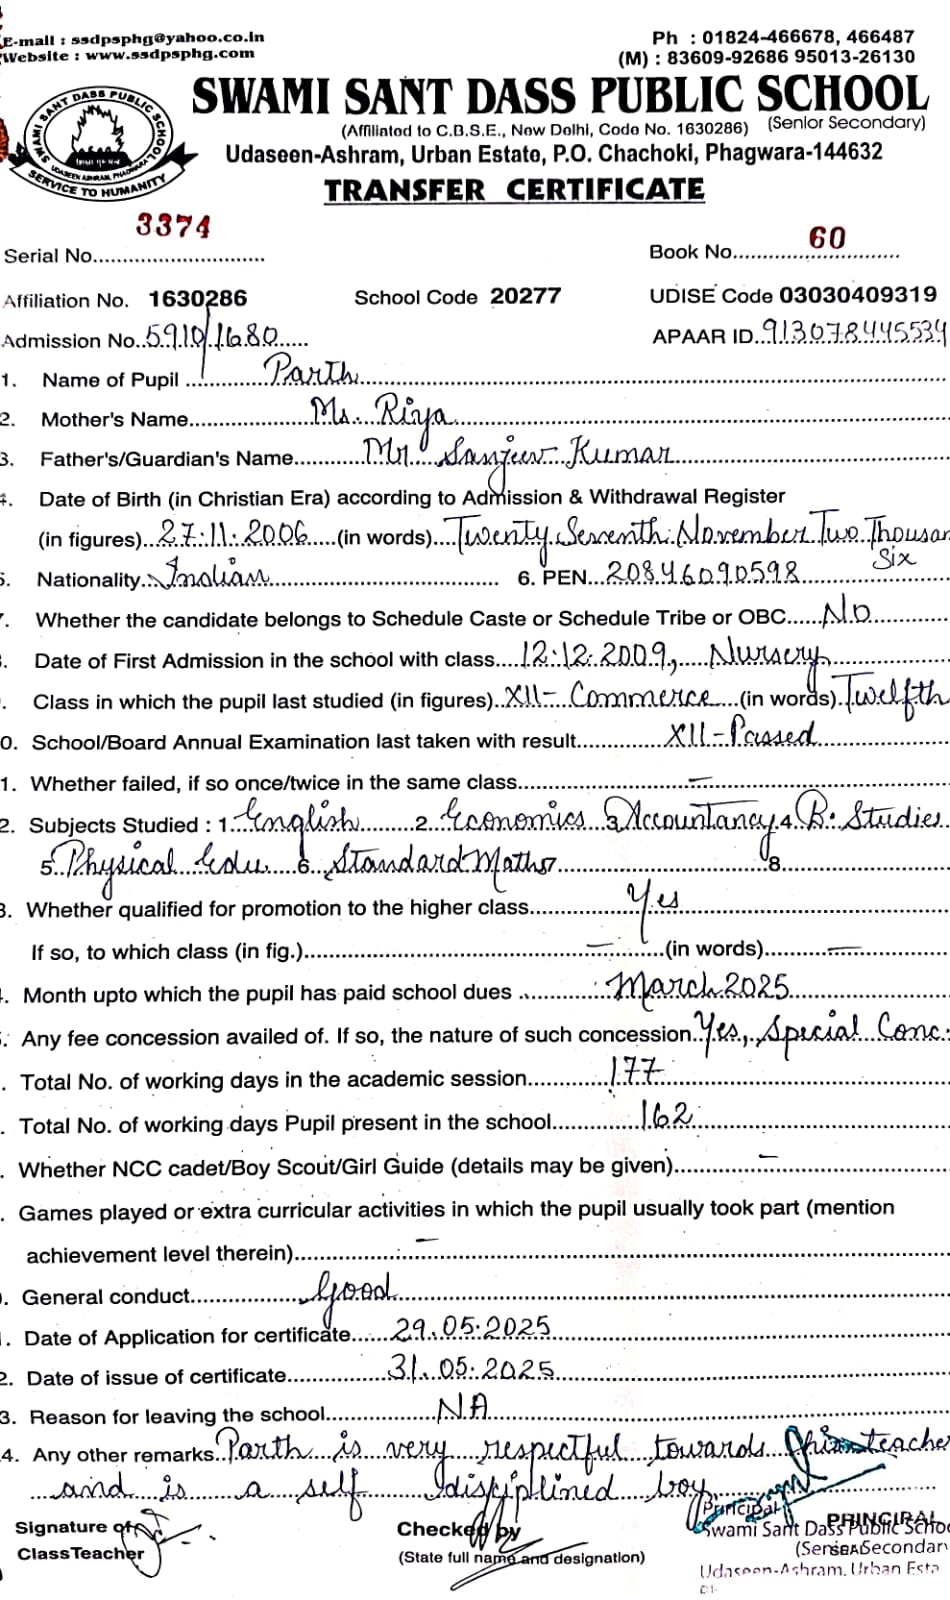 E-mail : ssdpsphg@yahoo.co.in
Website : www.ssdpsphg.com
Ph : 01824-466678, 466487
(M) : 83609-92686 95013-26130
SWAMI SANT DASS PUBLIC SCHOOL
SWAMI SANT DASS PUBLIC SCHOOL
UDASEEN ASHRAM, PHAGWARA
SERVICE TO HUMANITY
(Affiliated to C.B.S.E., New Delhi, Code No. 1630286) (Senior Secondary)
Udaseen-Ashram, Urban Estate, P.O. Chachoki, Phagwara-144632
TRANSFER CERTIFICATE
Serial No. 3374
Book No. 60
Affiliation No. 1630286 School Code 20277 UDISE Code 03030409319
Admission No. 5910/1680 APAAR ID 913078445534
1. Name of Pupil Parth
2. Mother's Name Ms. Riya
3. Father's/Guardian's Name Mr. Sanjeev Kumar
4. Date of Birth (in Christian Era) according to Admission & Withdrawal Register
(in figures) 27.11.2006 (in words) Twenty Seventh November Two Thousan
Six
5. Nationality Indian 6. PEN 20846090598
7. Whether the candidate belongs to Schedule Caste or Schedule Tribe or OBC No
. Date of First Admission in the school with class 12.12.2009, Nursery
. Class in which the pupil last studied (in figures) XII- Commerce (in words) Twelfth
0. School/Board Annual Examination last taken with result XII-Passed
1. Whether failed, if so once/twice in the same class —
2. Subjects Studied : 1 English 2 Economics 3 Accountancy 4 B. Studies
5 Physical Edu 6 Standard Maths 7 8
3. Whether qualified for promotion to the higher class Yes
If so, to which class (in fig.) — (in words) —
. Month upto which the pupil has paid school dues March 2025
. Any fee concession availed of. If so, the nature of such concession Yes, Special Conc.
. Total No. of working days in the academic session 177
. Total No. of working days Pupil present in the school 162
. Whether NCC cadet/Boy Scout/Girl Guide (details may be given) —
. Games played or extra curricular activities in which the pupil usually took part (mention
achievement level therein) —
. General conduct Good
1. Date of Application for certificate 29.05.2025
2. Date of issue of certificate 31.05.2025
3. Reason for leaving the school NA
4. Any other remarks Parth is very respectful towards his teache
and is a self disciplined boy
Signature of
Class Teacher
Checked by
(State full name and designation)
PRINCIPAL
Principal
Swami Sant Dass Public Schoo
(Senior Secondar
SEAL
Udaseen-Ashram, Urban Esta